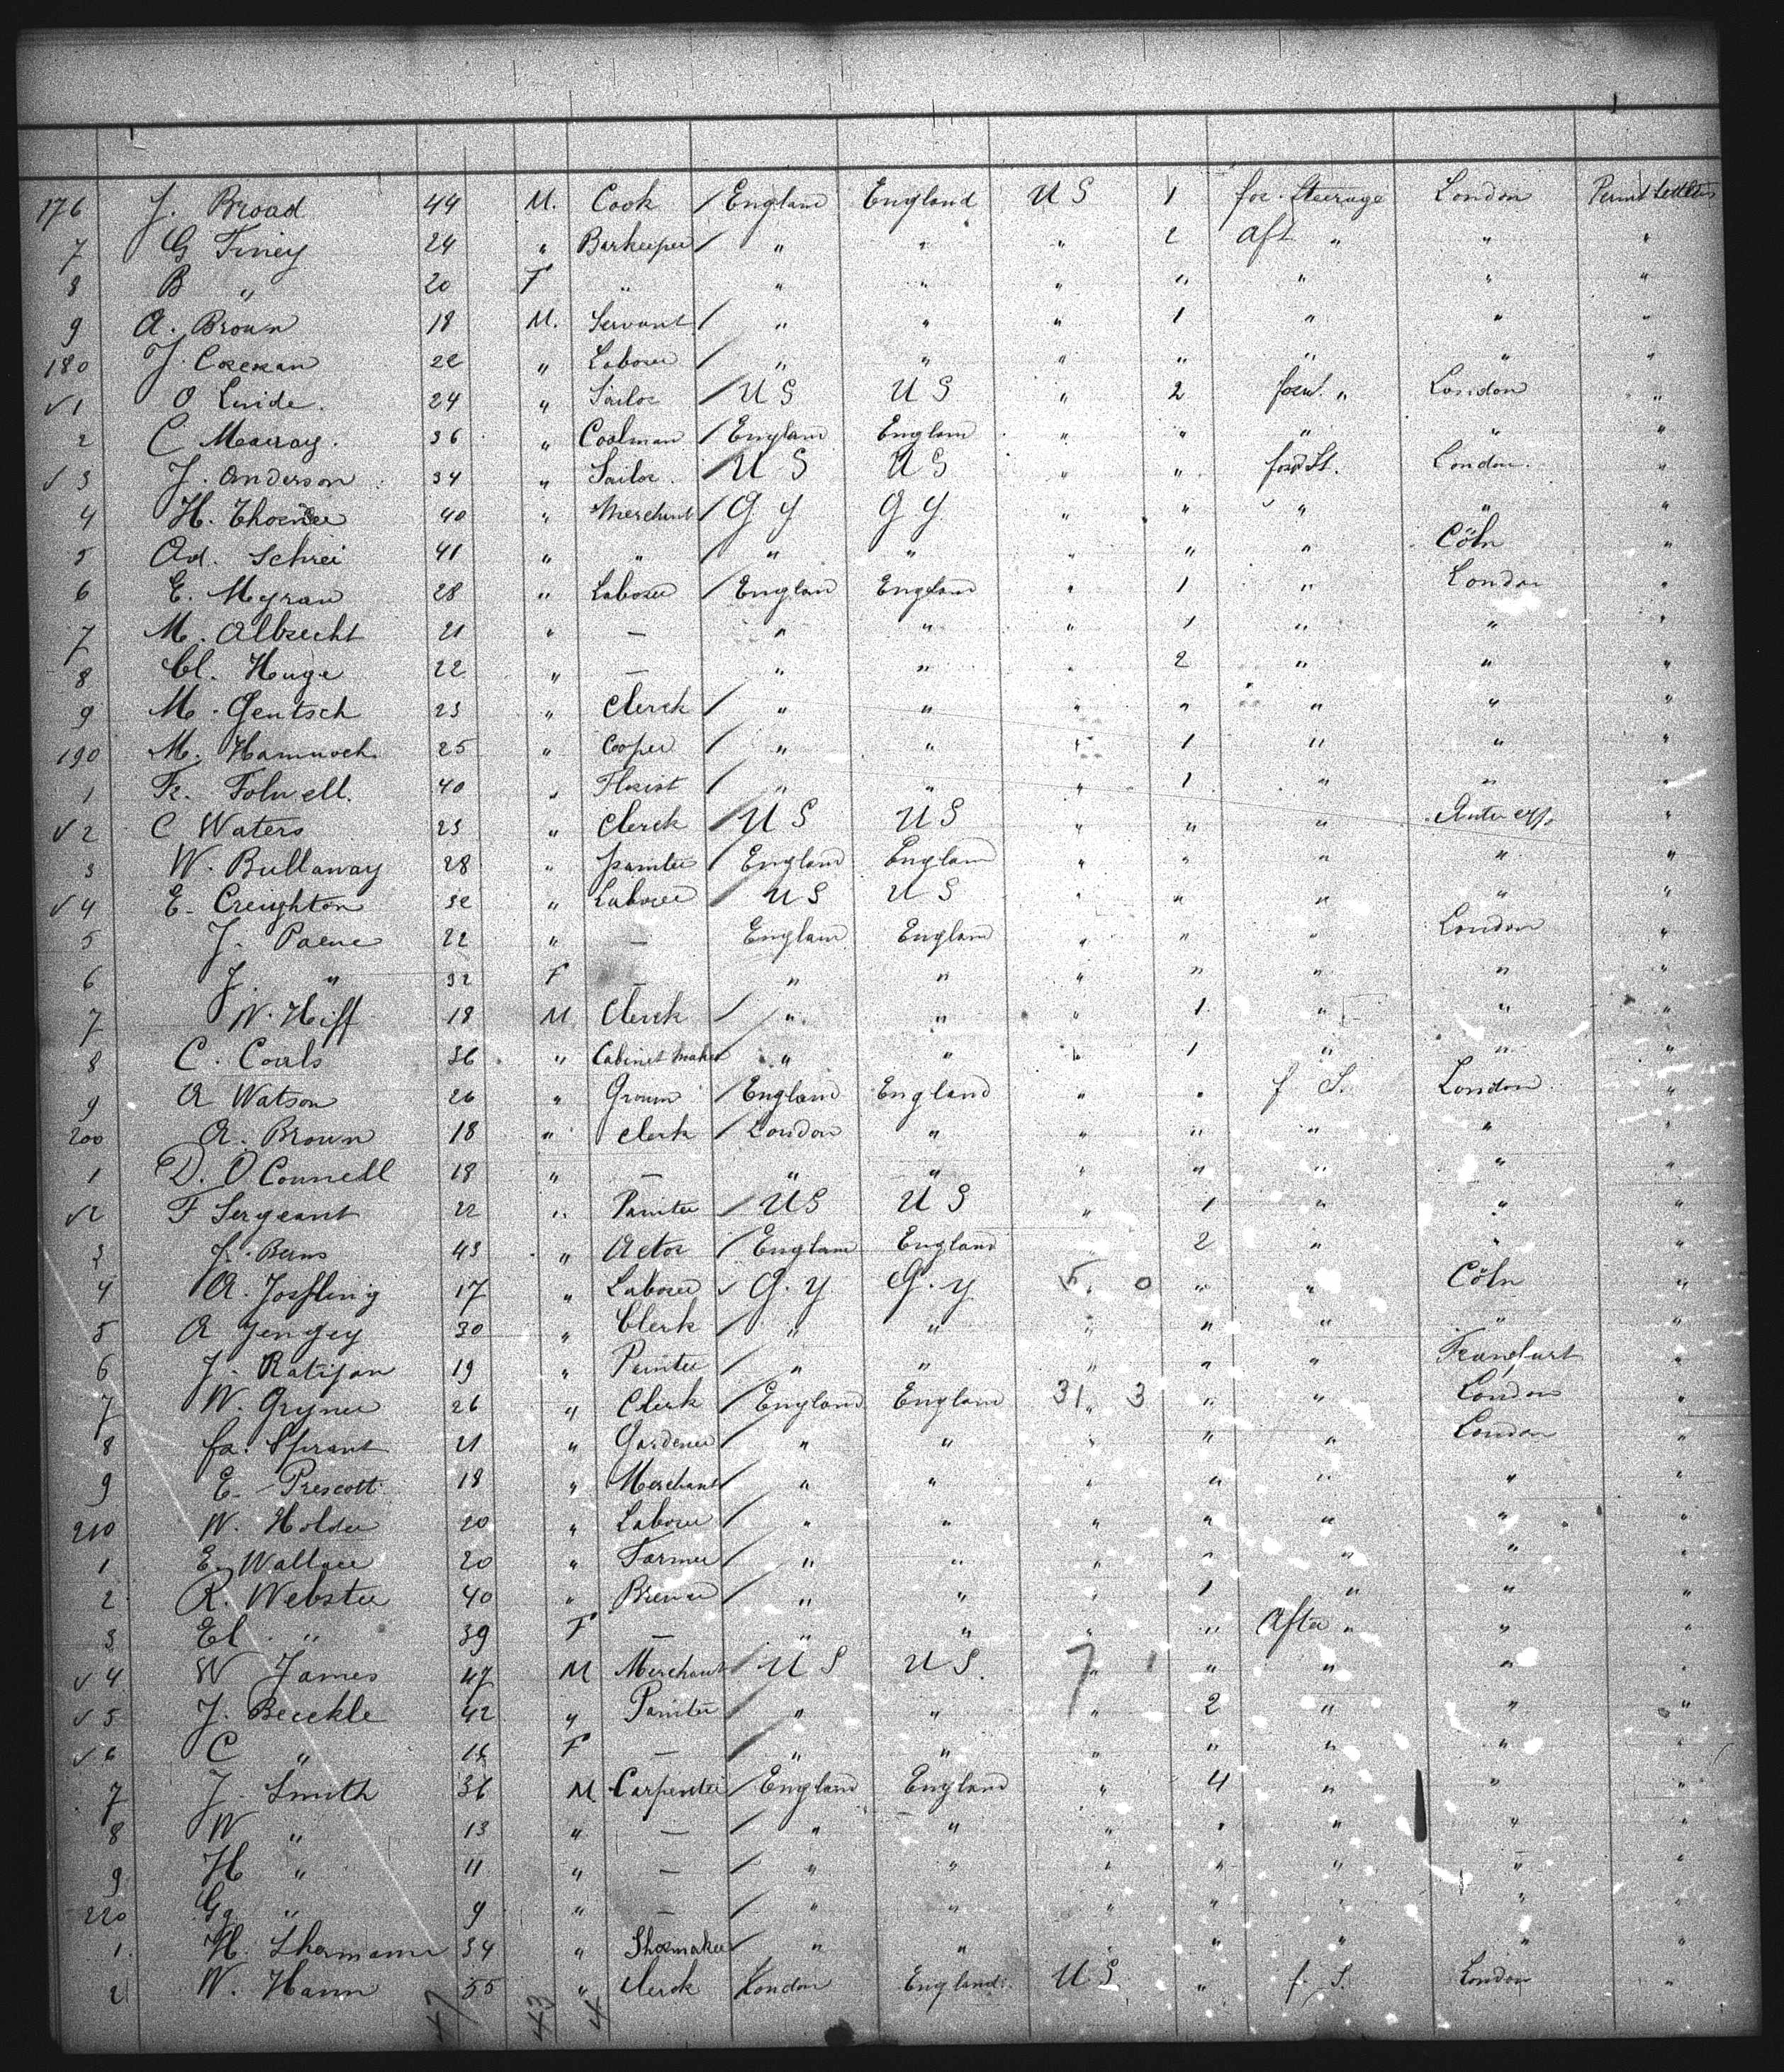 176 J. Broad 44 M. Cook / England England U S 1 for. Steerage London Permt Settlers
7 G Finey 24 " Barkeeper / " " " 2 aft " " "
8 B " 20 F " " " " " " " "
9 A. Brown 18 M. Servant / " " " 1 " " "
180 J. 22 " Laborer / " " " " " " "
√ 1 O Linde. 24 " Sailor / U S U S " 2 forw. " London "
2 C Murray. 36 " Coalman / England England " " " " "
√ 3 J. Anderson 34 " Sailor. / U S U S " " forw St. London. "
4 H. 40 " Merchant / G Y G Y " " " " "
5 Ad. Schrei 41 " " / " " " " " Cöln "
6 E. Meyran 28 " Laborer / England England " 1 " London "
7 M. Albrecht 21 " — " " " 1 " " "
8 Cl. Huge 22 " — " " " 2 " " "
9 M. Gentsch 23 " Clerck / " " " " " " "
190 M. Hamnoch 25 " Cooper / " " " 1 " " "
1 Fr. Folwell. 40 " Florist / " " " 1 " " "
√ 2 C Waters 23 " Clerck / U S U S " " " "
3 W. Bullaway 28 " painter / England England " " " " "
√ 4 E. Creighton 32 " Laborer / U S U S " " " " "
5 J. Paene 22 " — England England " " " London "
6 J. " 32 F — " " " " " " "
7 W. Hiff 18 M Clerck / " " " 1 " " "
8 C. Coals 36 " Cabinet maker " " " 1 " " "
9 A Watson 26 " Groom / England England " " f S. London "
200 A. Brown 18 " Clerk / London " " " " " "
1 D. O Connell 18 " — " " " " " " "
√ 2 F Sergeant 22 " Painter / U S U S " 1 " " "
3 J. Berns 43 " Actor / England England " 2 " " "
4 A. Jossling 17 " Laborer √ G. Y G. Y 5 " 0 " " Cöln "
5 A Yengey 30 " Clerk / " " " " " " "
6 J. Ratijan 19 " Painter / " " " " " Frankfurt "
7 W. Gryner 26 " Clerk / England England 31 " 3 " " London "
8 Ja. Spirant 21 " Gardener / " " " " " London "
9 E. Prescott 18 " Merchant / " " " " " " "
210 W. Holder 20 " Laborer / " " " " " " "
1 E. Wallace 20 " Farmer / " " " " " " "
2 R. Webster 40 " Brewer / " " " 1 " " "
3 El. " 39 F — " " " " After " " "
√ 4 W James 47 M Merchant / U S U S. 7 " 1 " " " "
√ 5 J. Beuckle 42 " Painter / " " " 2 " " "
√ 6 C " 18 F — / " " " " " " "
7 J. Smith 36 M Carpenter / England England " 4 " " "
8 W " 13 " — / " " " " " " "
9 H " 11 " — / " " " " " " "
220 Gg " 9 " — / " " " " " " "
1 H. Shermann 34 " Shoemaker / " " " " " " "
2 W. Hann 55 " Clerck London England U S " f. S. London "
47 43 4